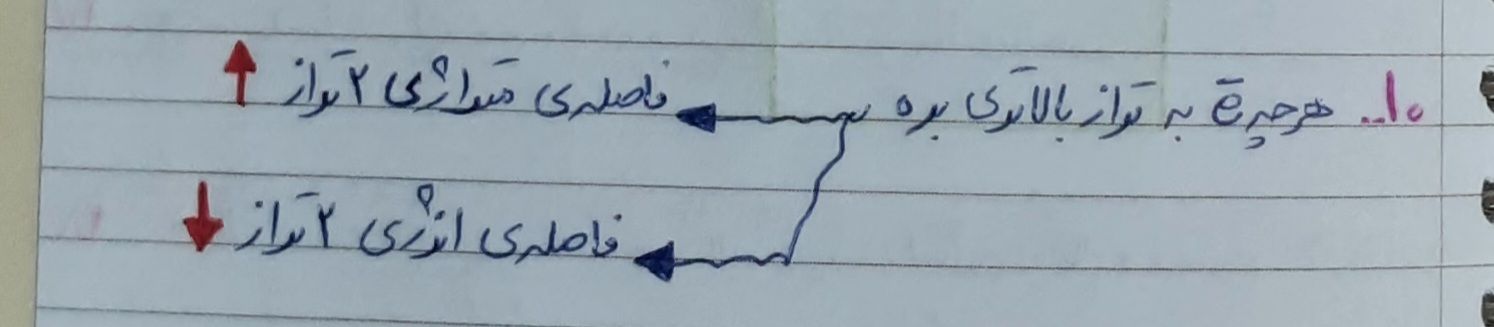 ۱۰.. هرچه ē به تراز بالاتری بره ← فاصله‌ی ۲ تراز ↑
← فاصله‌ی انرژی ۲ تراز ↓